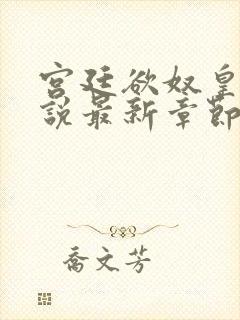 宫廷欲奴皇
說最新章節
喬文芳